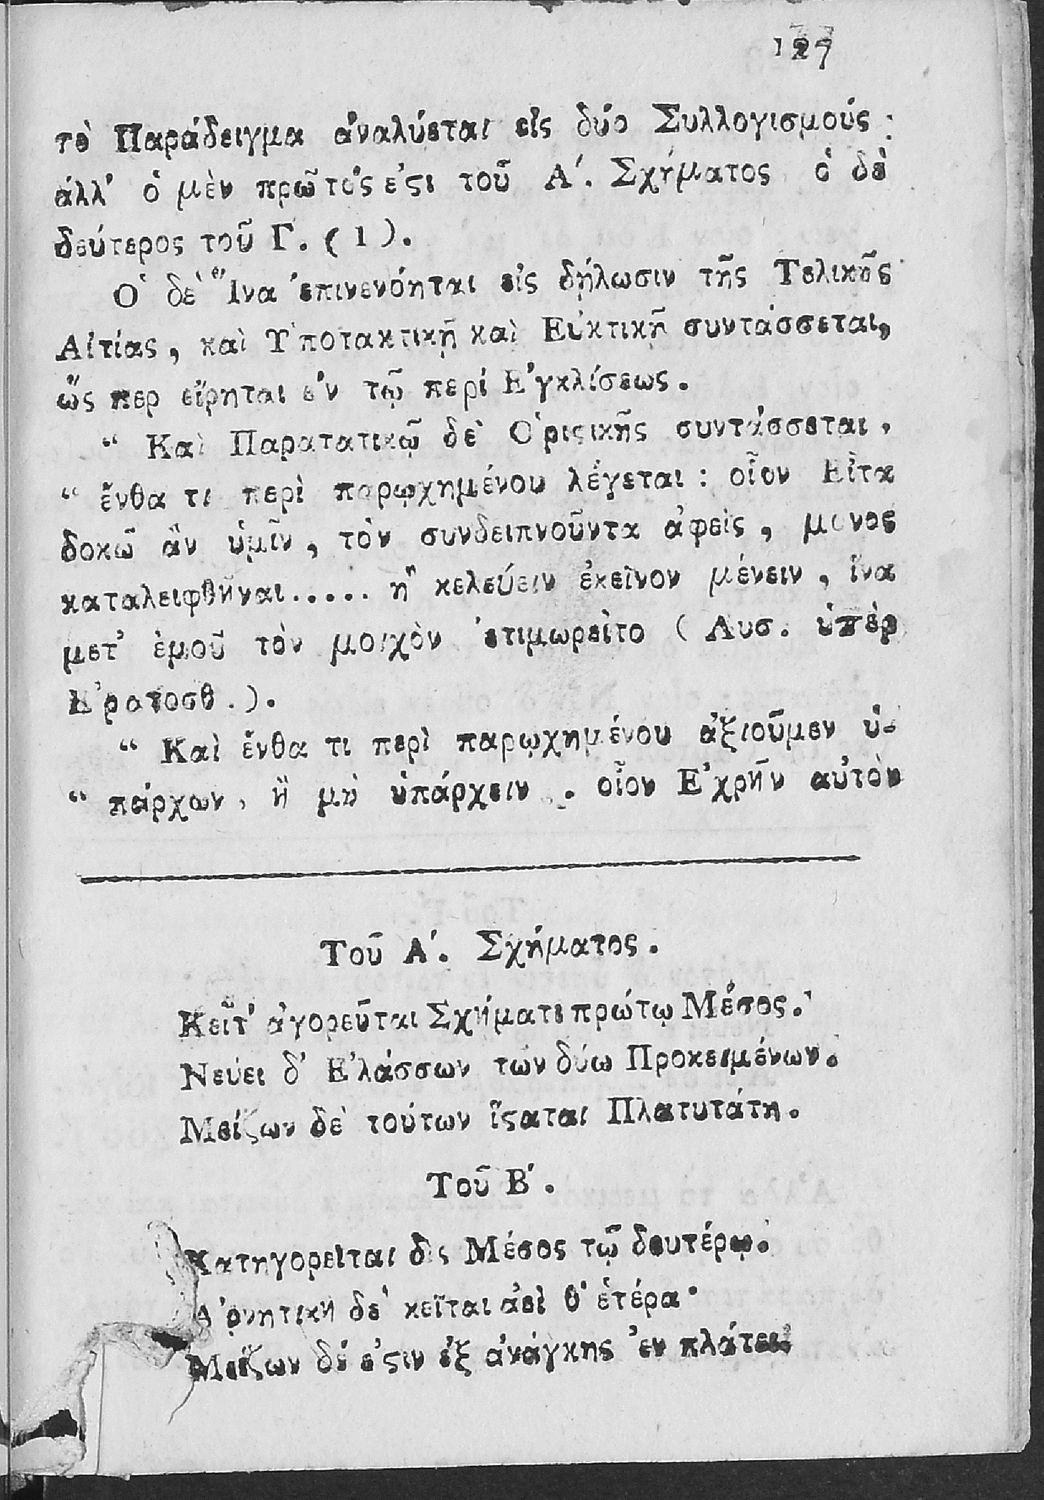 127
τὸ Παράδειγμα ἀναλύεται εἰς δύο Συλλογισμούς :
ἀλλ' ὁ μὲν πρῶτός ἐϛι τοῦ Α΄. Σχήματος ὁ δὲ
δεύτερος τοῦ Γ. ( 1 ).
Ὁ δὲ Ἵνα ἐπινενόηται εἰς δήλωσιν τῆς Τελικῆς
Αἰτίας , καὶ Ὑποτακτικῇ καὶ Εὐκτικῇ συντάσσεται,
ὥς περ εἴρηται ἐν τῷ περί Ἐγκλίσεως .
“ Καὶ Παρατατικῷ δὲ Ὁριϛικῆς συντάσσεται ,
“ ἔνθα τι περὶ παρῳχημένου λέγεται : οἷον Εἶτα
δοκῶ ἂν ὑμῖν , τὸν συνδειπνοῦντα ἀφεὶς , μονος
καταλειφθῆναι ..... ἢ κελεύειν ἐκεῖνον μένειν , ἵνα
μετ' ἐμοῦ τὸν μοιχὸν ἐτιμωρεῖτο ( Λυσ. ὑπὲρ
Ἐρατοσθ . ).
“ Καὶ ἔνθα τι περὶ παρῳχημένου ἀξιοῦμεν ὑ-
“ πάρχων , ἢ μὴ ὑπάρχειν . οἷον Ἐχρῆν αὐτὸν
Τοῦ Α΄. Σχήματος .
Κεῖτ' ἀγορεῦται Σχήματι πρώτῳ Μέσος .
Νεύει δ' Ἐλάσσων τῶν δύω Προκειμένων .
Μείζων δὲ τούτων ἵϛαται Πλατυτάτη .
Τοῦ Β΄ .
Κατηγορεῖται δὶς Μέσος τῷ δευτέρῳ .
Ἀρνητικὴ δὲ κεῖται ἀεὶ θ' ἑτέρα ·
Μείζων δέ ἐϛιν ἐξ ἀνάγκης ἐν πλάτει